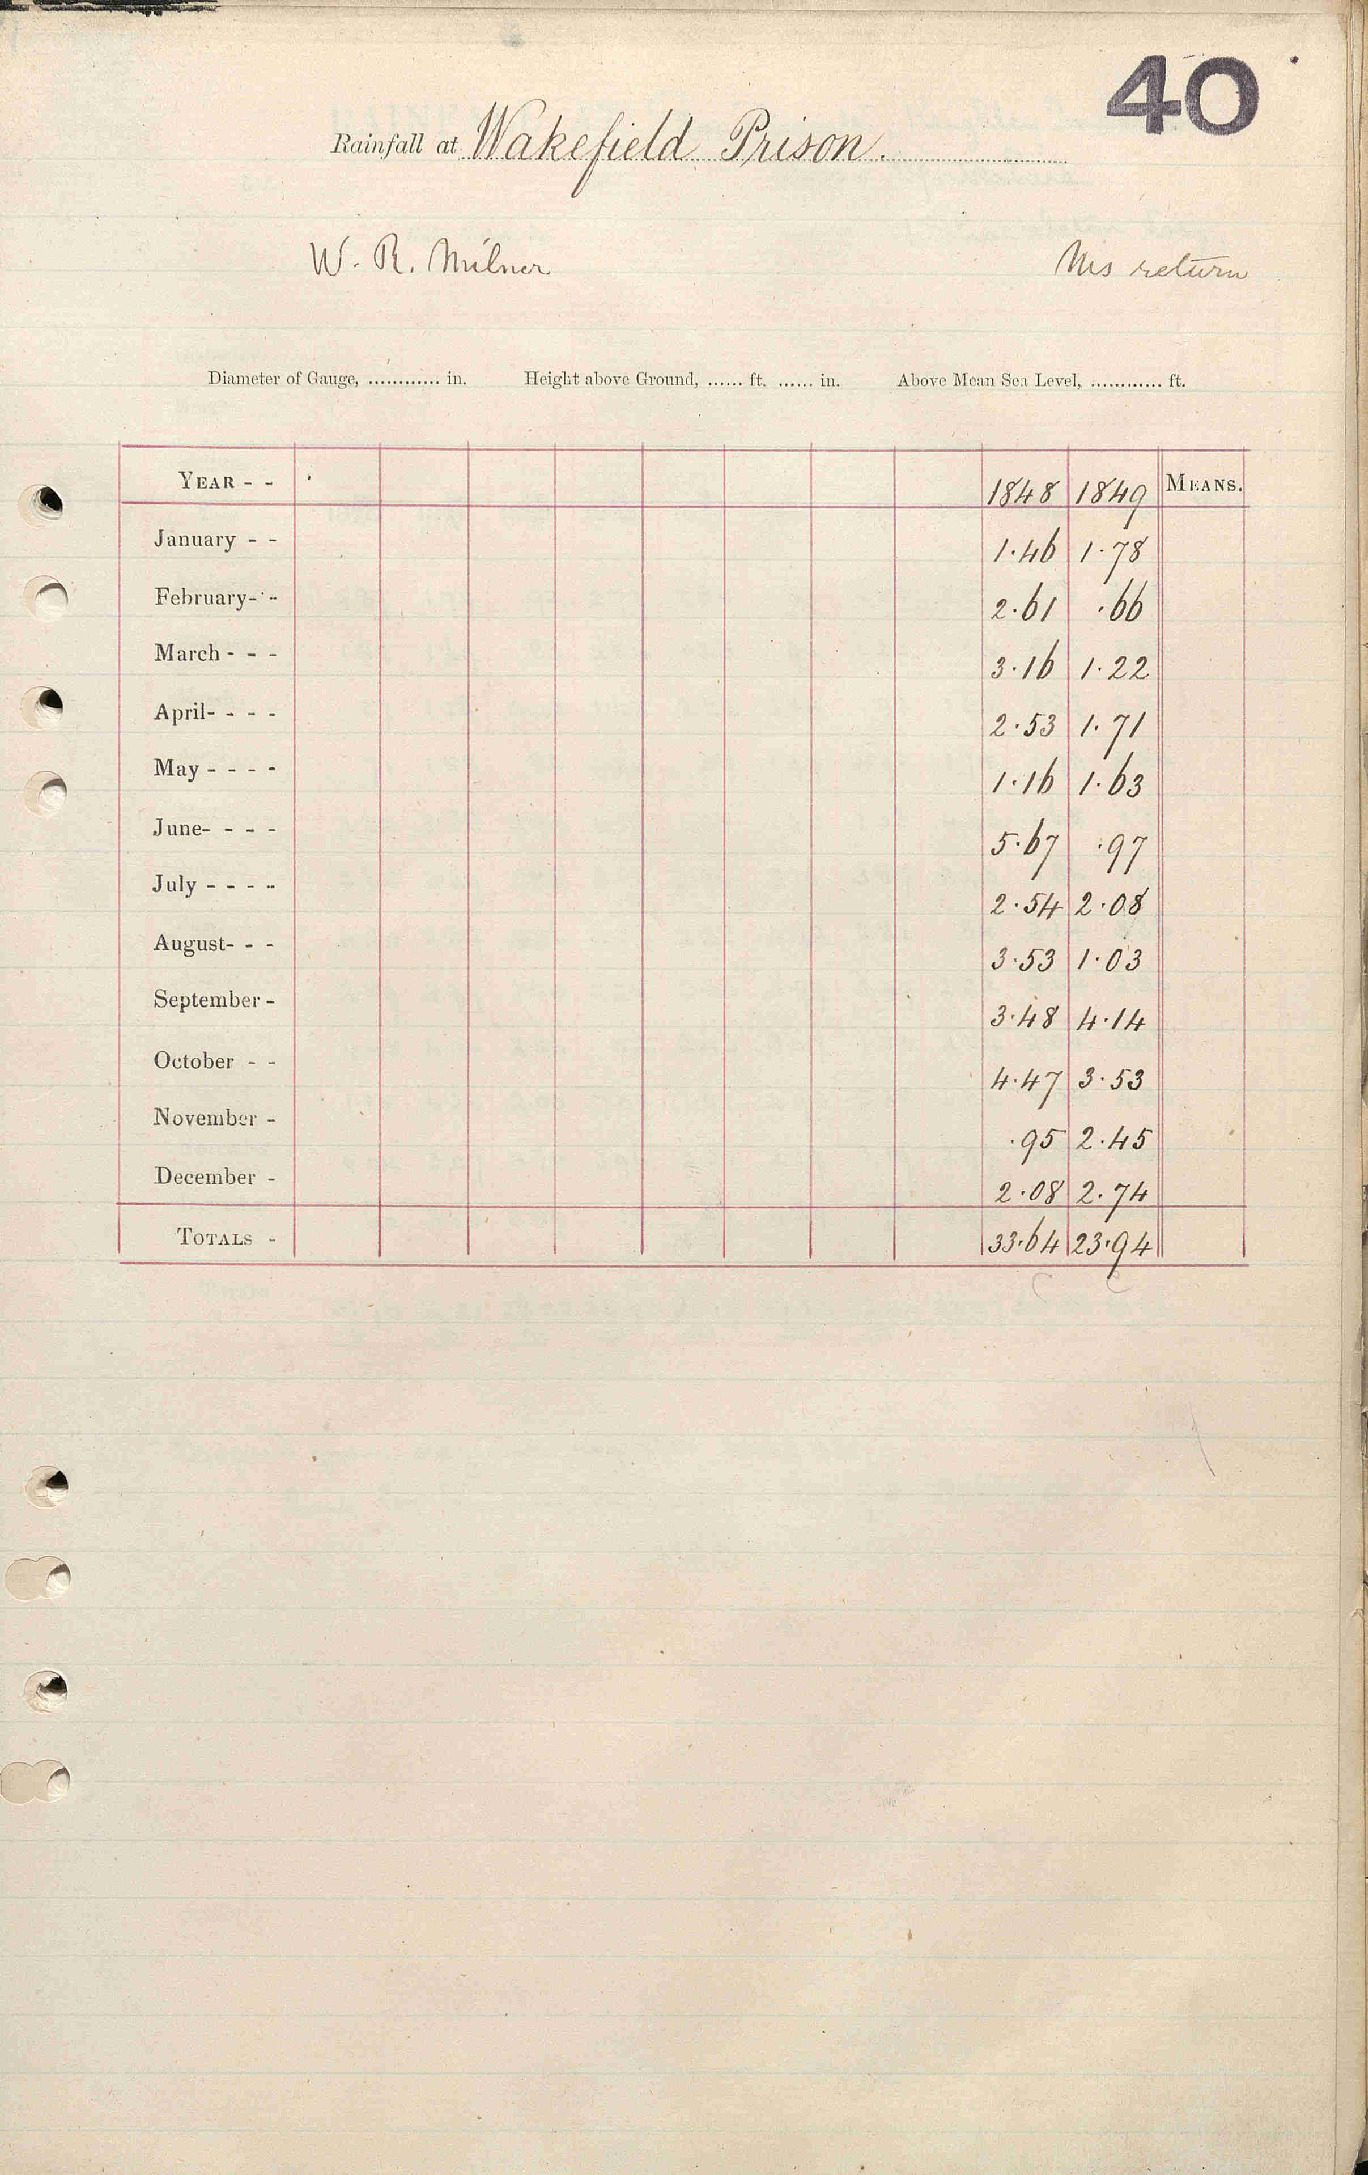 40
Rainfall at Wakefield Prison.
W. R. Milner Ms return
Diameter of Gauge, ............ in. Height above Ground, ...... ft. ...... in. Above Mean Sea Level, ............ ft.
YEAR - - 1848 1849 MEANS.
January - - 1.46 1.78
February - - 2.61 .66
March - - - 3.16 1.22
April - - - - 2.53 1.71
May - - - - 1.16 1.63
June - - - - 5.67 .97
July - - - - 2.54 2.08
August - - - 3.53 1.03
September - 3.48 4.14
October - - 4.47 3.53
November - .95 2.45
December - 2.08 2.74
TOTALS - 33.64 23.94